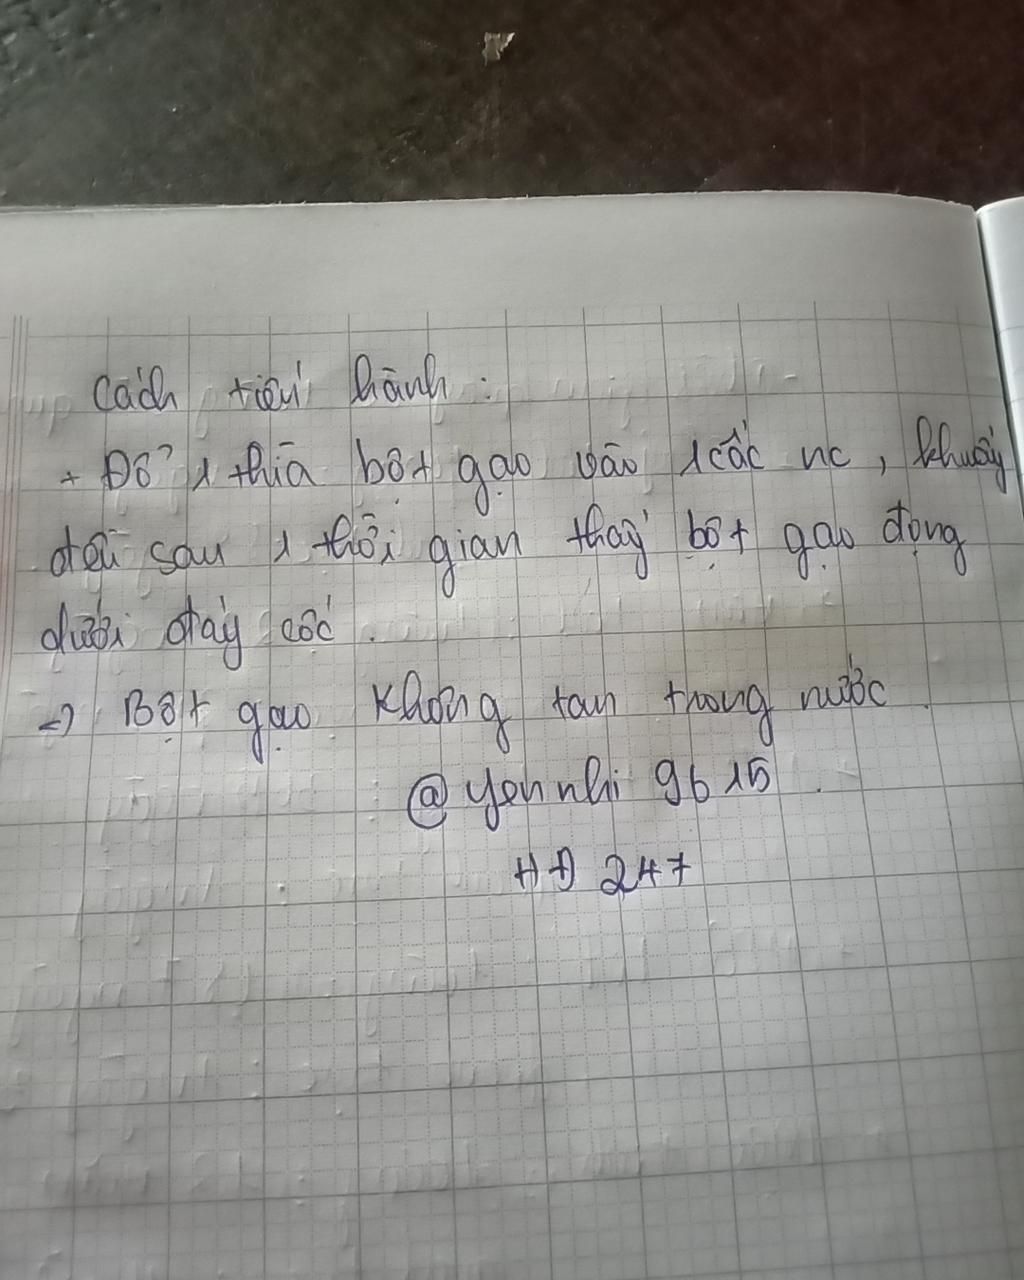 Cách tiến hành :
+ Đổ 1 thìa bột gạo vào 1 cốc nc , khuấy
đều sau 1 thời gian thấy bột gạo đọng
dưới đáy cốc .
=> Bột gạo không tan trong nước .
@ yen nhi 96 15 .
HĐ 247